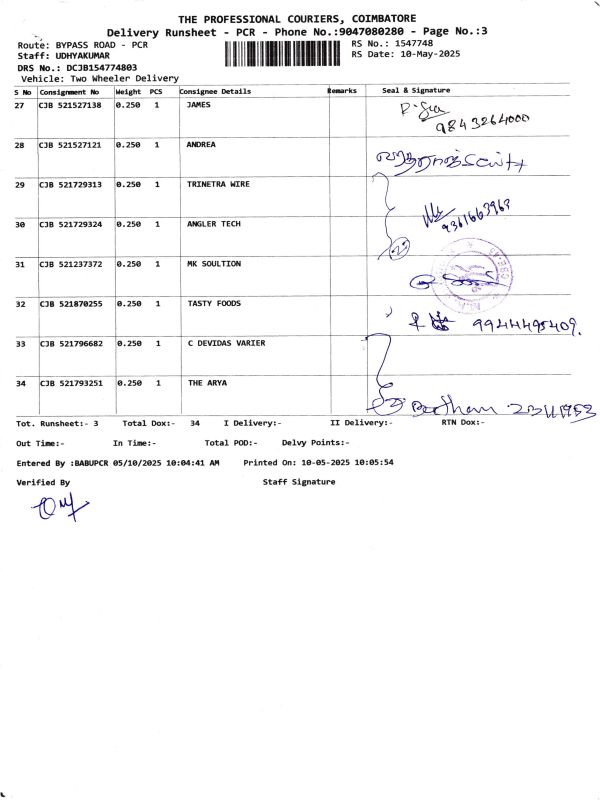 THE PROFESSIONAL COURIERS, COIMBATORE
Delivery Runsheet - PCR - Phone No.:9047080280 - Page No.:3
Route: BYPASS ROAD - PCR RS No.: 1547748
Staff: UDHYAKUMAR RS Date: 10-May-2025
DRS No.: DCJB154774803
Vehicle: Two Wheeler Delivery
S No Consignment No Weight PCS Consignee Details Remarks Seal & Signature
27 CJB 521527138 0.250 1 JAMES
9843264000
28 CJB 521527121 0.250 1 ANDREA
29 CJB 521729313 0.250 1 TRINETRA WIRE
9361663963
30 CJB 521729324 0.250 1 ANGLER TECH
31 CJB 521237372 0.250 1 MK SOULTION
32 CJB 521870255 0.250 1 TASTY FOODS
9944495409.
33 CJB 521796682 0.250 1 C DEVIDAS VARIER
34 CJB 521793251 0.250 1 THE ARYA
Tot. Runsheet:- 3 Total Dox:- 34 I Delivery:- II Delivery:- RTN Dox:-
Out Time:- In Time:- Total POD:- Delvy Points:-
Entered By :BABUPCR 05/10/2025 10:04:41 AM Printed On: 10-05-2025 10:05:54
Verified By Staff Signature